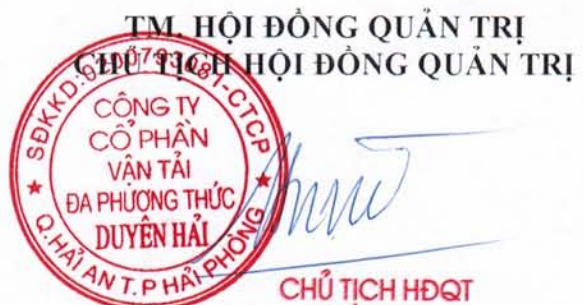 TM. HỘI ĐỒNG QUẢN TRỊ
CHỦ TỊCH HỘI ĐỒNG QUẢN TRỊ
CÔNG TY
CỔ PHẦN
VẬN TẢI
ĐA PHƯƠNG THỨC
DUYÊN HẢI
Q.HẢI AN T.P HẢI PHÒNG
CHỦ TỊCH HĐQT